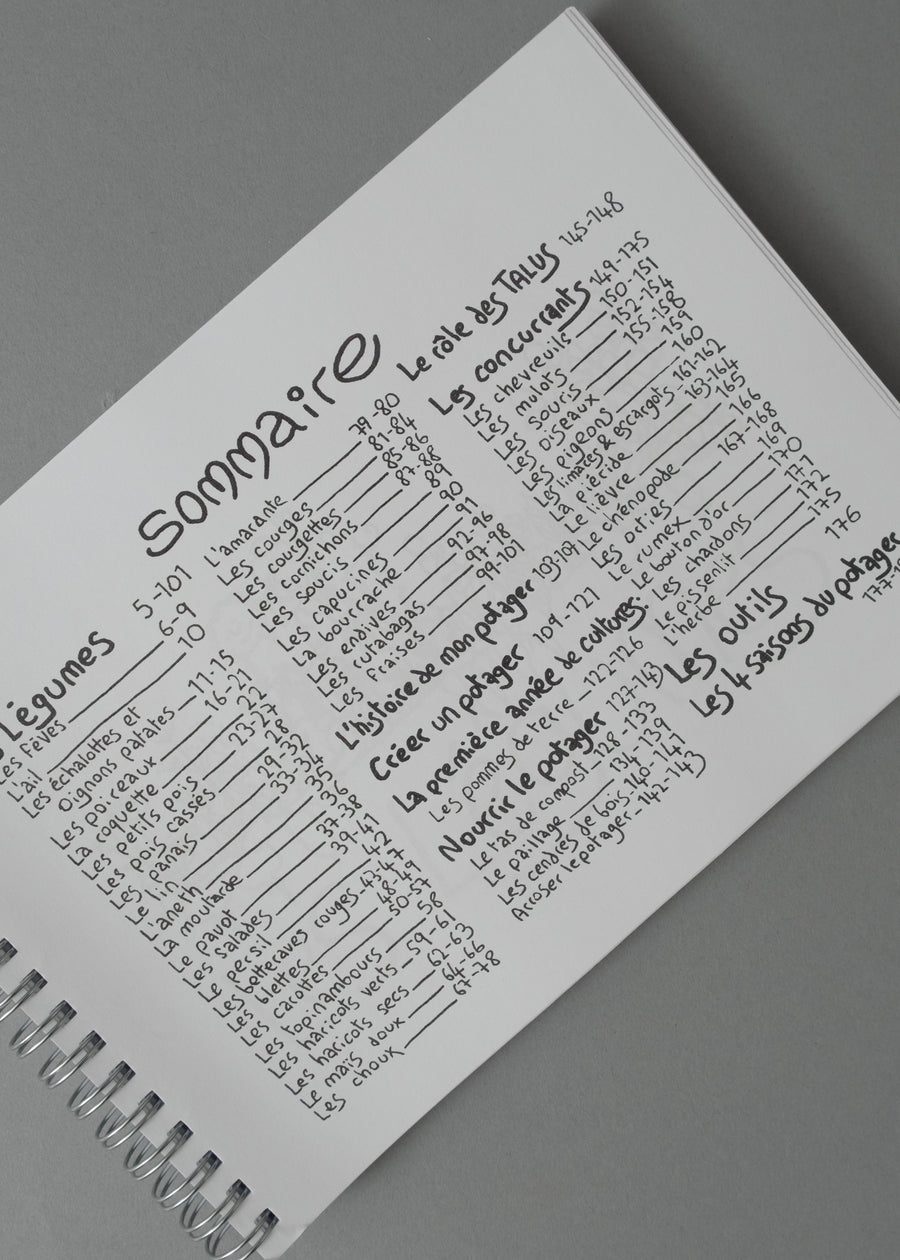 Sommaire
Légumes 5-101
Les fèves 6-9
L'ail 10
Les échalottes et
Oignons patates 11-15
Les poireaux 16-21
La roquette 22
Les petits pois 23-27
Les pois cassés 28
Les panais 29-32
Le lin 33-34
L'aneth 35
La moutarde 36
Le pavot 37-38
Les salades 39-41
Le persil 42
Les betteraves rouges 43-47
Les blettes 48-49
Les carottes 50-57
Les topinambours 58
Les haricots verts 59-61
Les haricots secs 62-63
Le maïs doux 64-66
Les choux 67-78
L'amarante 79-80
Les courges 81-84
Les courgettes 85-86
Les cornichons 87-88
Les soucis 89
Les capucines 90
La bourrache 91
Les endives 92-96
Les rutabagas 97-98
Les fraises 99-101
L'histoire de mon potager 103-107
Créer un potager 109-121
La première année de cultures.
Les pommes de terre 122-126
Nourrir le potager 127-143
Le tas de compost 128-133
Le paillage 134-139
Les cendres de bois 140-141
Arroser le potager 142-143
Le rôle des TALUS 145-148
Les concurrants 149-175
Les chevreuils 150-151
Les mulots 152-154
Les souris 155-158
Les oiseaux 159
Les pigeons 160
Les limaces & escargots 161-162
La piéride 163-164
Le lièvre 165
Le chénopode 166
Les orties 167-168
Le rumex 169
Le bouton d'or 170
Les chardons 171
Le pissenlit 172
L'herbe 175
Les outils 176
Les 4 saisons du potager